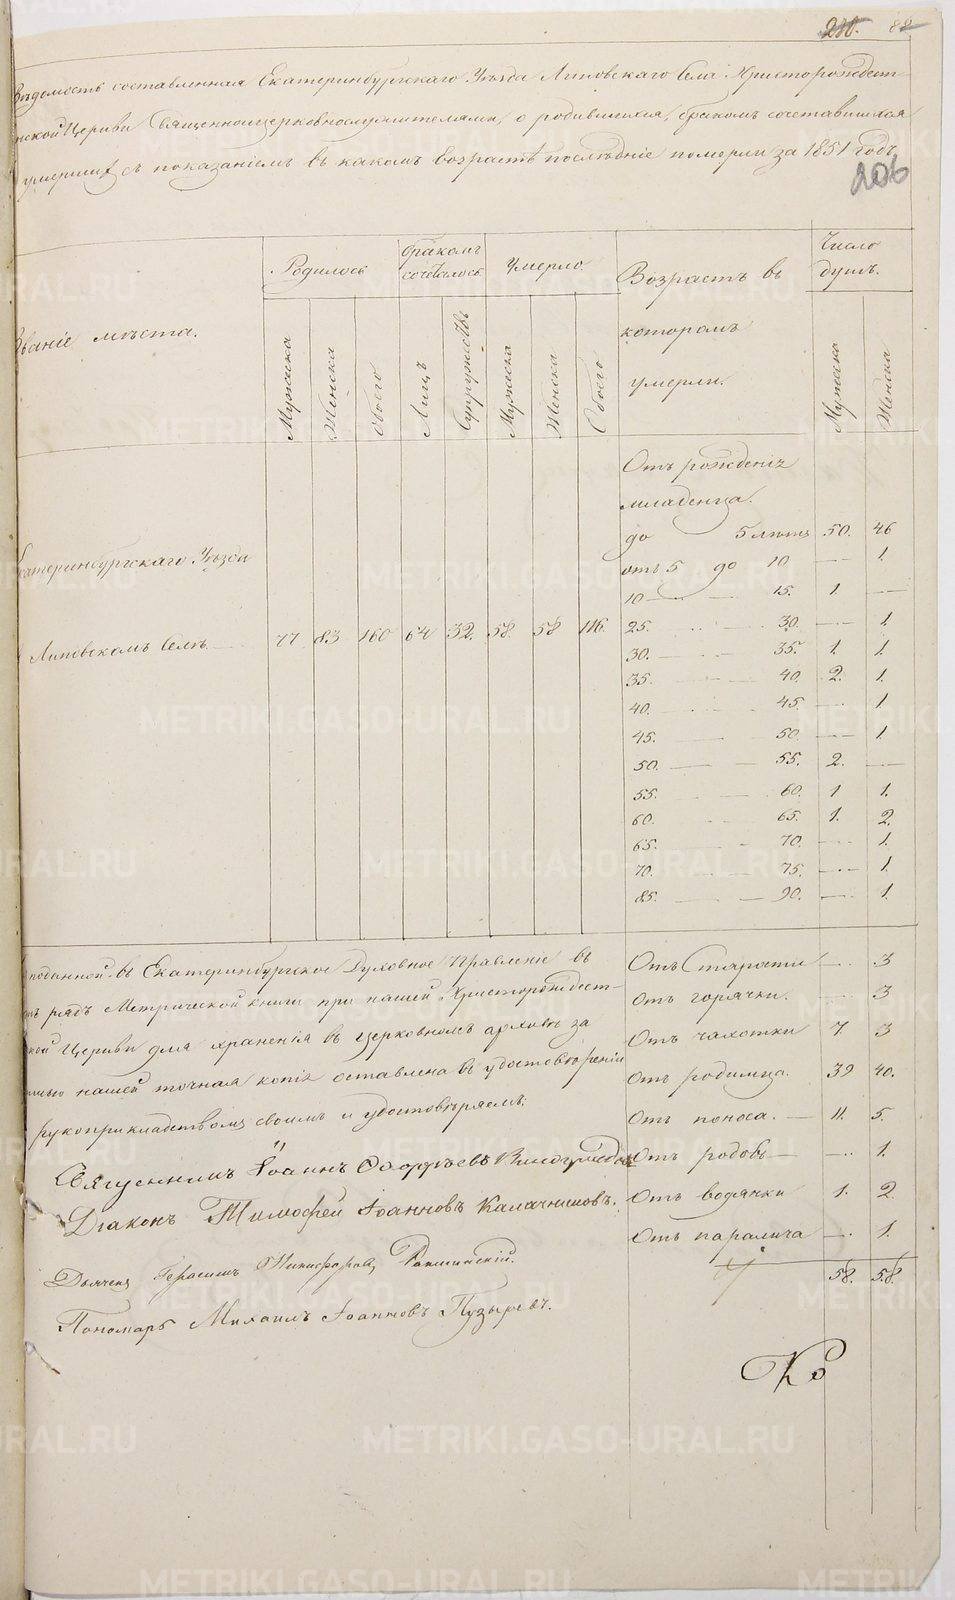 210. 82
Вѣдомость составленная Екатеринбургскаго Уѣзда Липовскаго Села Христорождест-
венской Церкви Священноцерковнослужителями, о родившихся, бракомъ сочетавшихся
умершихъ съ показаніемъ въ какомъ возрастѣ послѣдніе померли за 1851 годъ.
206
Званіе мѣста.
Родилось
Бракомъ сочеталось
Умерло.
Возрастъ въ которомъ умерли.
Число душъ.
Мужеска Женска Обоего Лицъ Супружествъ Мужеска Женска Обоего Мужеска Женска
Отъ рожденія
младенца.
до 5 лѣтъ 50. 46
отъ 5 до 10 — 1.
10 — 15. 1. —
Екатеринбургскаго Уѣзда
Липовскомъ Селѣ 77 83 160 64 32. 58. 58 116.
25. 30. — 1.
30. — 35. 1. 1.
35. — 40. 2. 1.
40. — 45. — 1.
45. — 50. — 1.
50. — 55. 2. —
55. 60. 1 1.
60. 65. 1. 2.
65. 70. — 1.
70. 75. — 1.
85. — 90. — 1.
поданной въ Екатеринбургское Духовное Правленіе въ
рядъ Метрической книги при нашей Христорождест-
ской Церкви для храненія въ церковномъ архивѣ за
нашей точная копія оставлена въ удостовѣреніи
рукоприкладствомъ своимъ и удостовѣряемъ.
Священникъ Іоаннъ Виноградовъ
Діаконъ Тимофей Іоанновъ Калачниковъ.
Дьячекъ Герасимъ Никифоровъ
Пономарь Михаилъ Іоанновъ Пузыревъ.
Отъ Старости — 3
Отъ горячки. — 3
Отъ чахотки 7 3
Отъ родимца. 39 40.
Отъ поноса. — 11. 5.
Отъ родовъ — — 1.
Отъ водянки 1. 2.
Отъ паралича — 1.
58. 58.